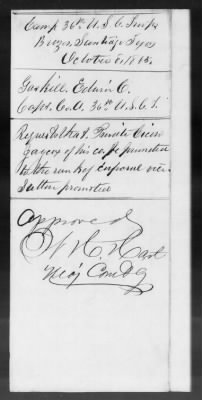 Camp 36th U.S.C. Troops
Brazos Santiago Texas
October 6, 1865.
Gaskill, Edwin C.
Capt. Co. A. 36th U.S.C.T.
Requests that Private
of his co. be promoted
to the rank of corporal vice
Sutton promoted
Approved
W H Hart
Maj Comdg